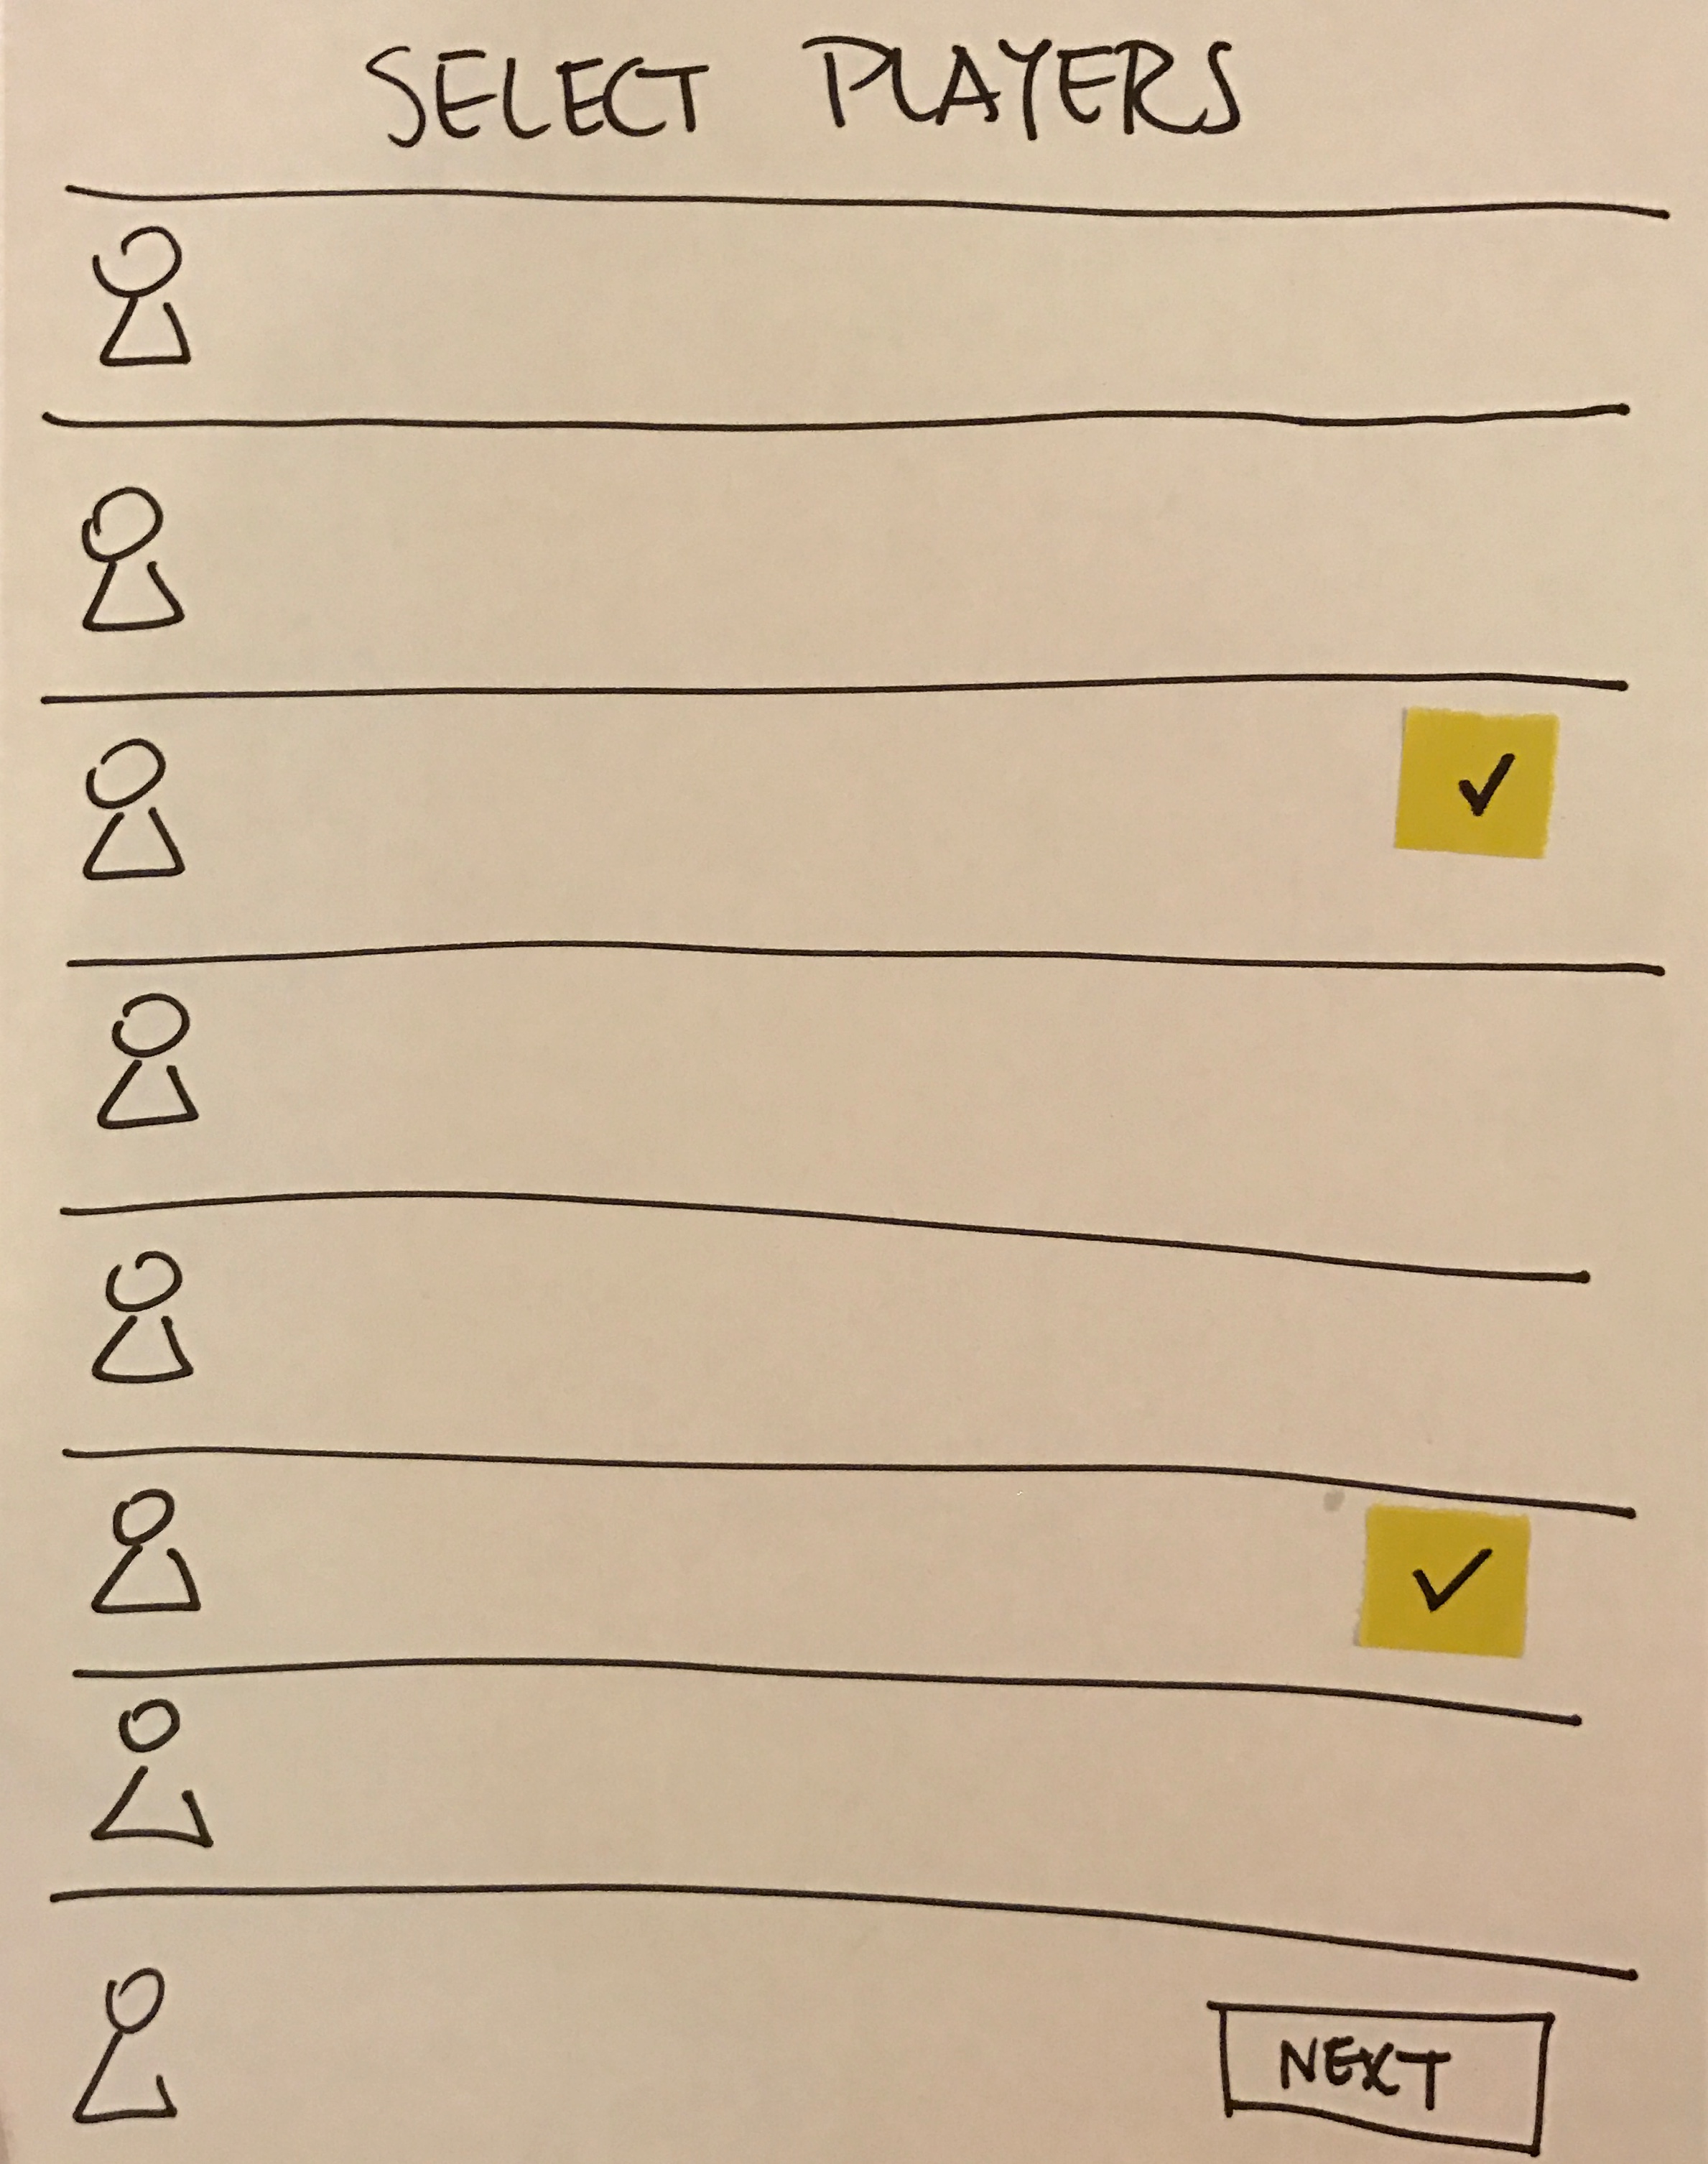 SELECT PLAYERS
✓
✓
NEXT